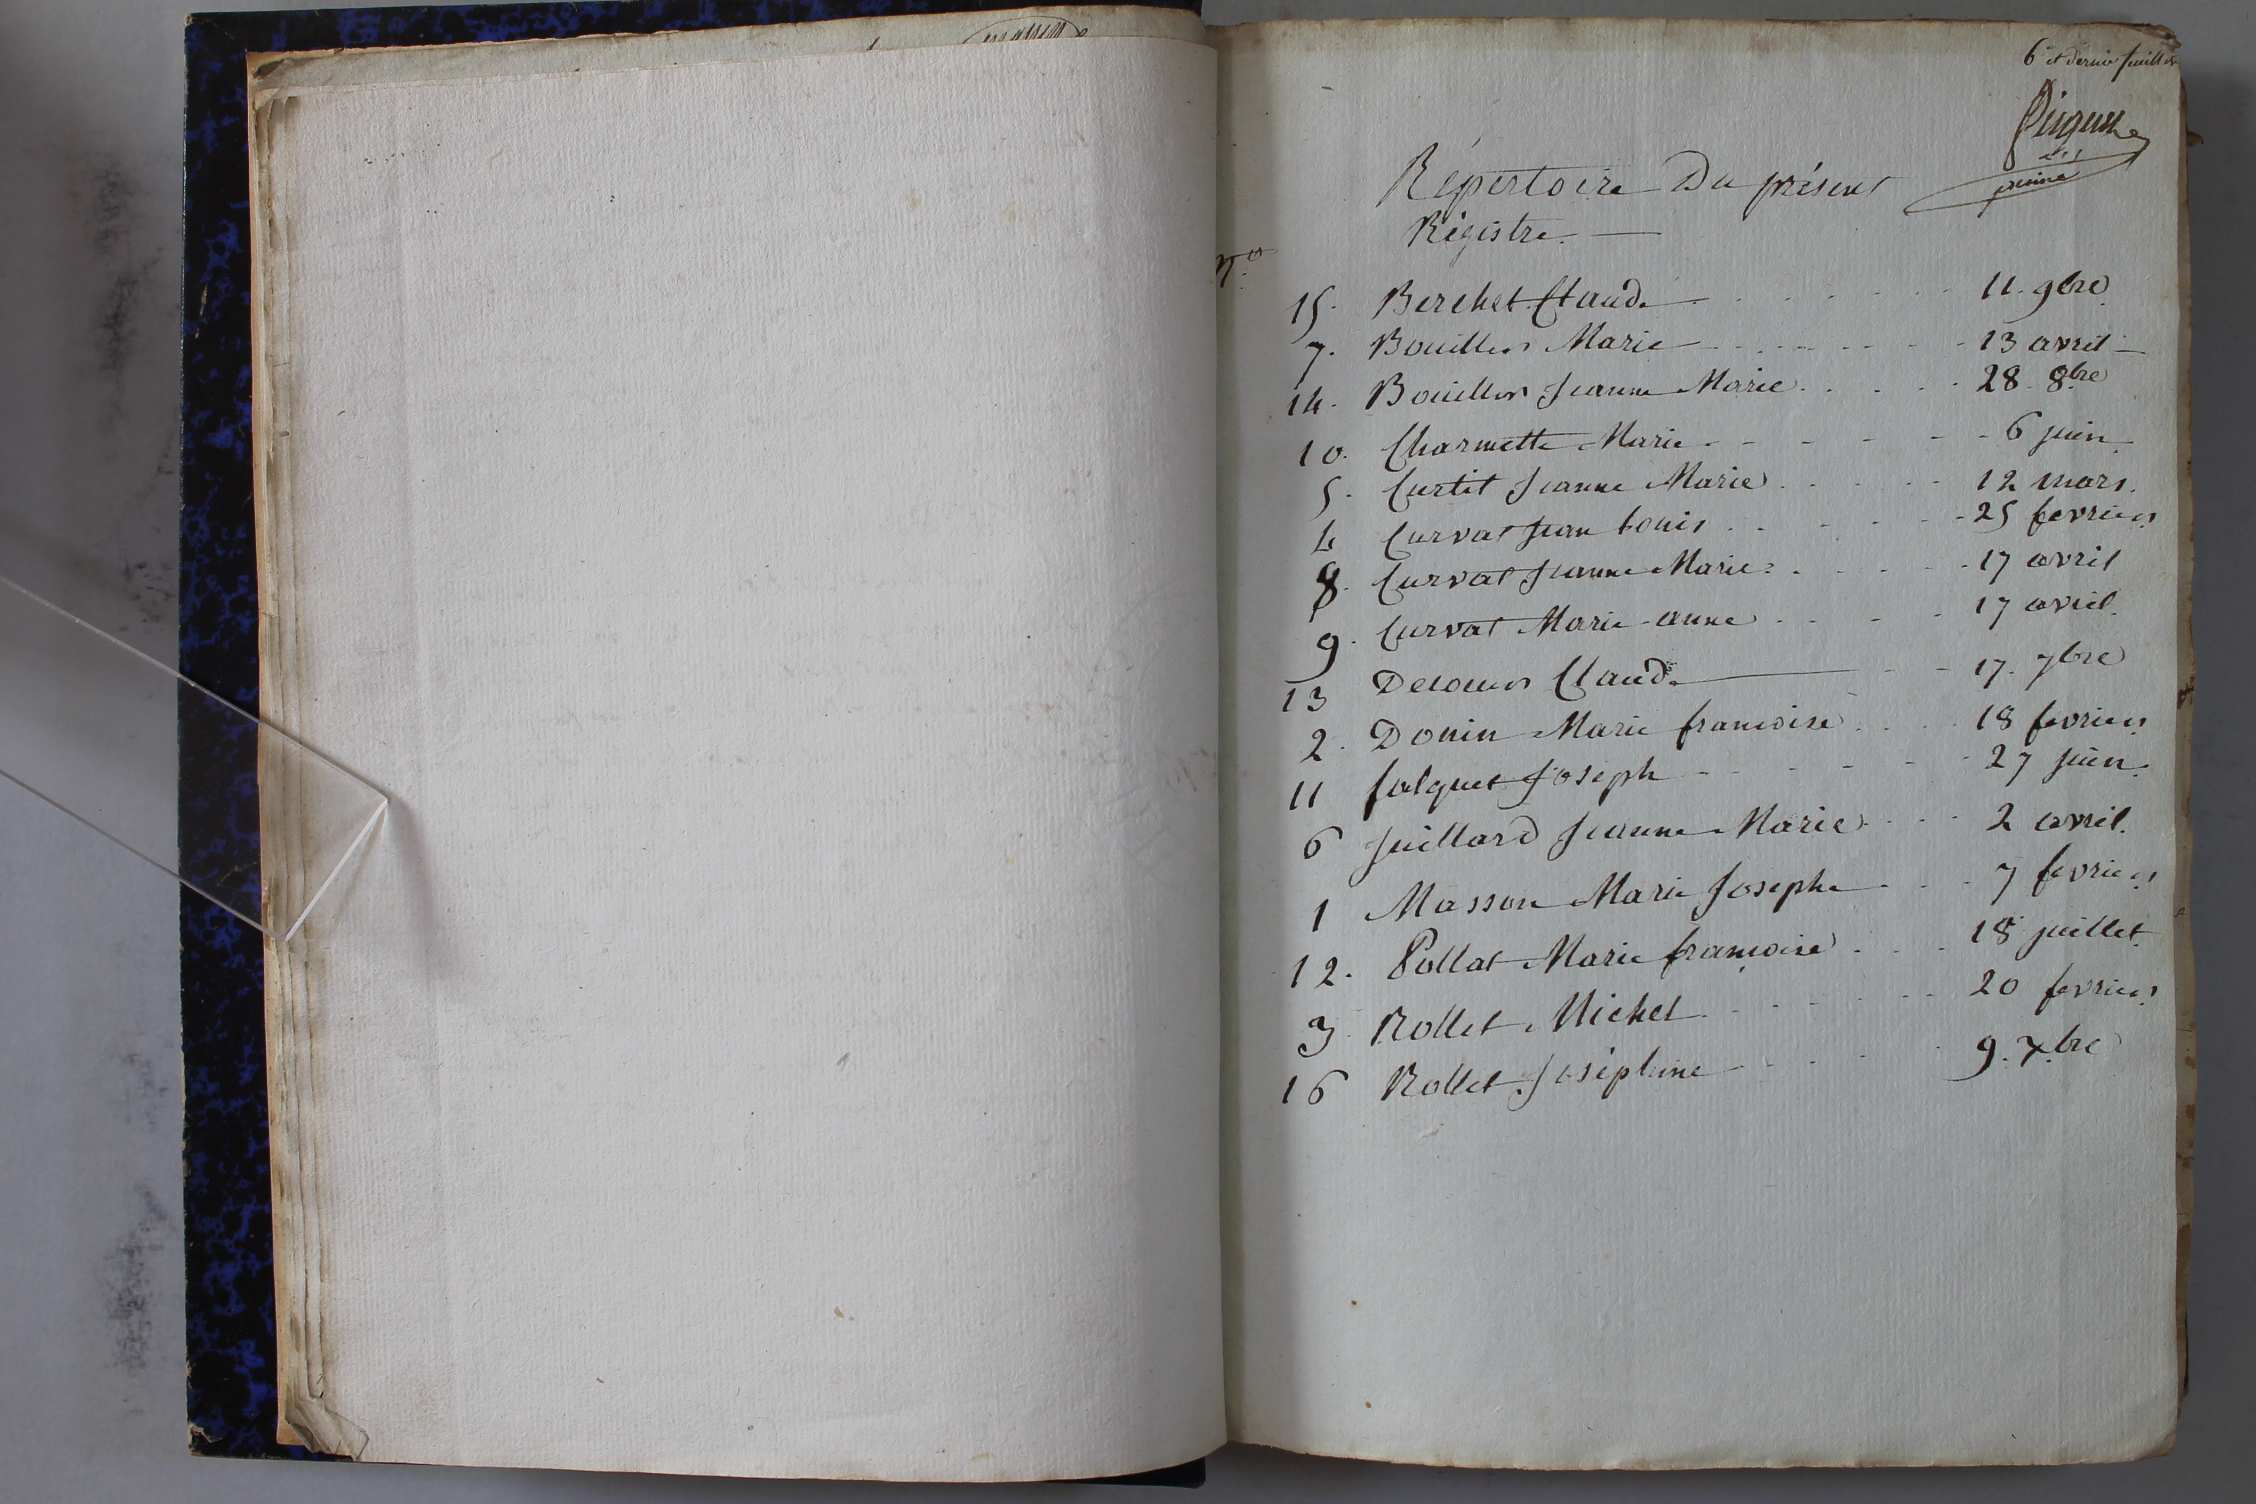 6e et dernier feuillet
Répertoire Du présent
Régistre.
Nos
15. Berchet Claude 11. 9bre
7. Bouillon Marie 13 avril
14. Bouillon Jeanne Marie 28 8bre
10. Charmette Marie 6 juin
5. Curtit Jeanne Marie 12 mars.
4 Curvat Jean Louis 25 fevrier
8. Curvat Jeanne Marie 17 avril
9. Curvat Marie anne 17 avril.
13 Decoeur Claude 17. 7bre
2. Donin Marie francoise 18 fevrier
11 falquet Joseph 27 juin.
6 Juillard Jeanne Marie 2 avril.
1 Masson Marie Josephe 7 fevrier
12. Pollat Marie françoise 18 juillet
3 Rollet Michel 20 fevrier
16 Rollet Joséphine 9. Xbre